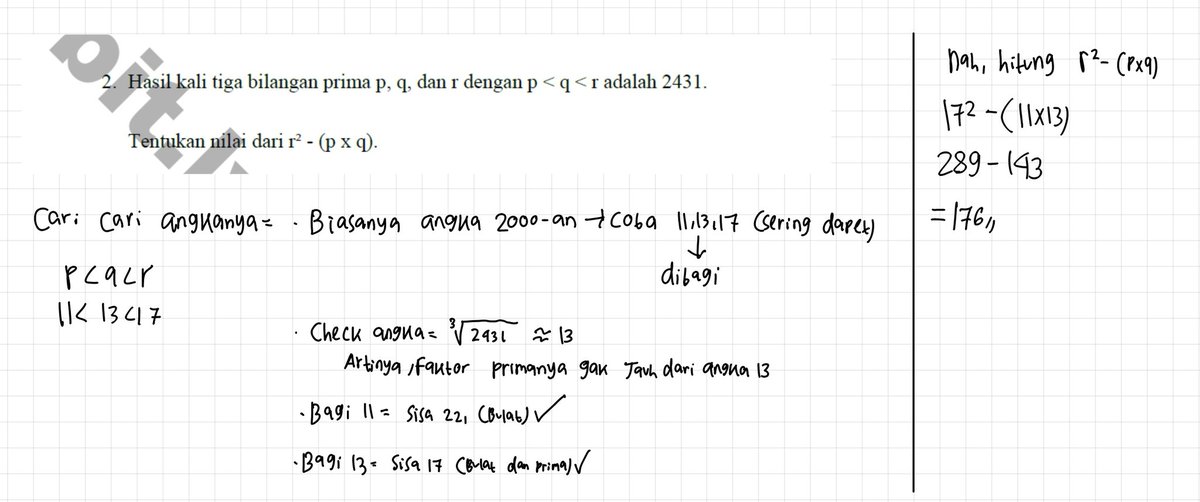 pit.
2. Hasil kali tiga bilangan prima p, q, dan r dengan p < q < r adalah 2431.
Tentukan nilai dari r² - (p x q).
Cari cari angkanya = · Biasanya angka 2000-an → Coba 11,13,17 (sering dapet)
↓
dibagi
p<q<r
11< 13<17
· Check angka = ³√2431 ≈ 13
Artinya, faktor primanya gak Jauh dari angka 13
· Bagi 11 = Sisa 221 (Bulat) ✓
· Bagi 13 = Sisa 17 (Bulat dan prima) ✓
Nah, hitung r²- (pxq)
17² - (11x13)
289 - 143
= 176,,